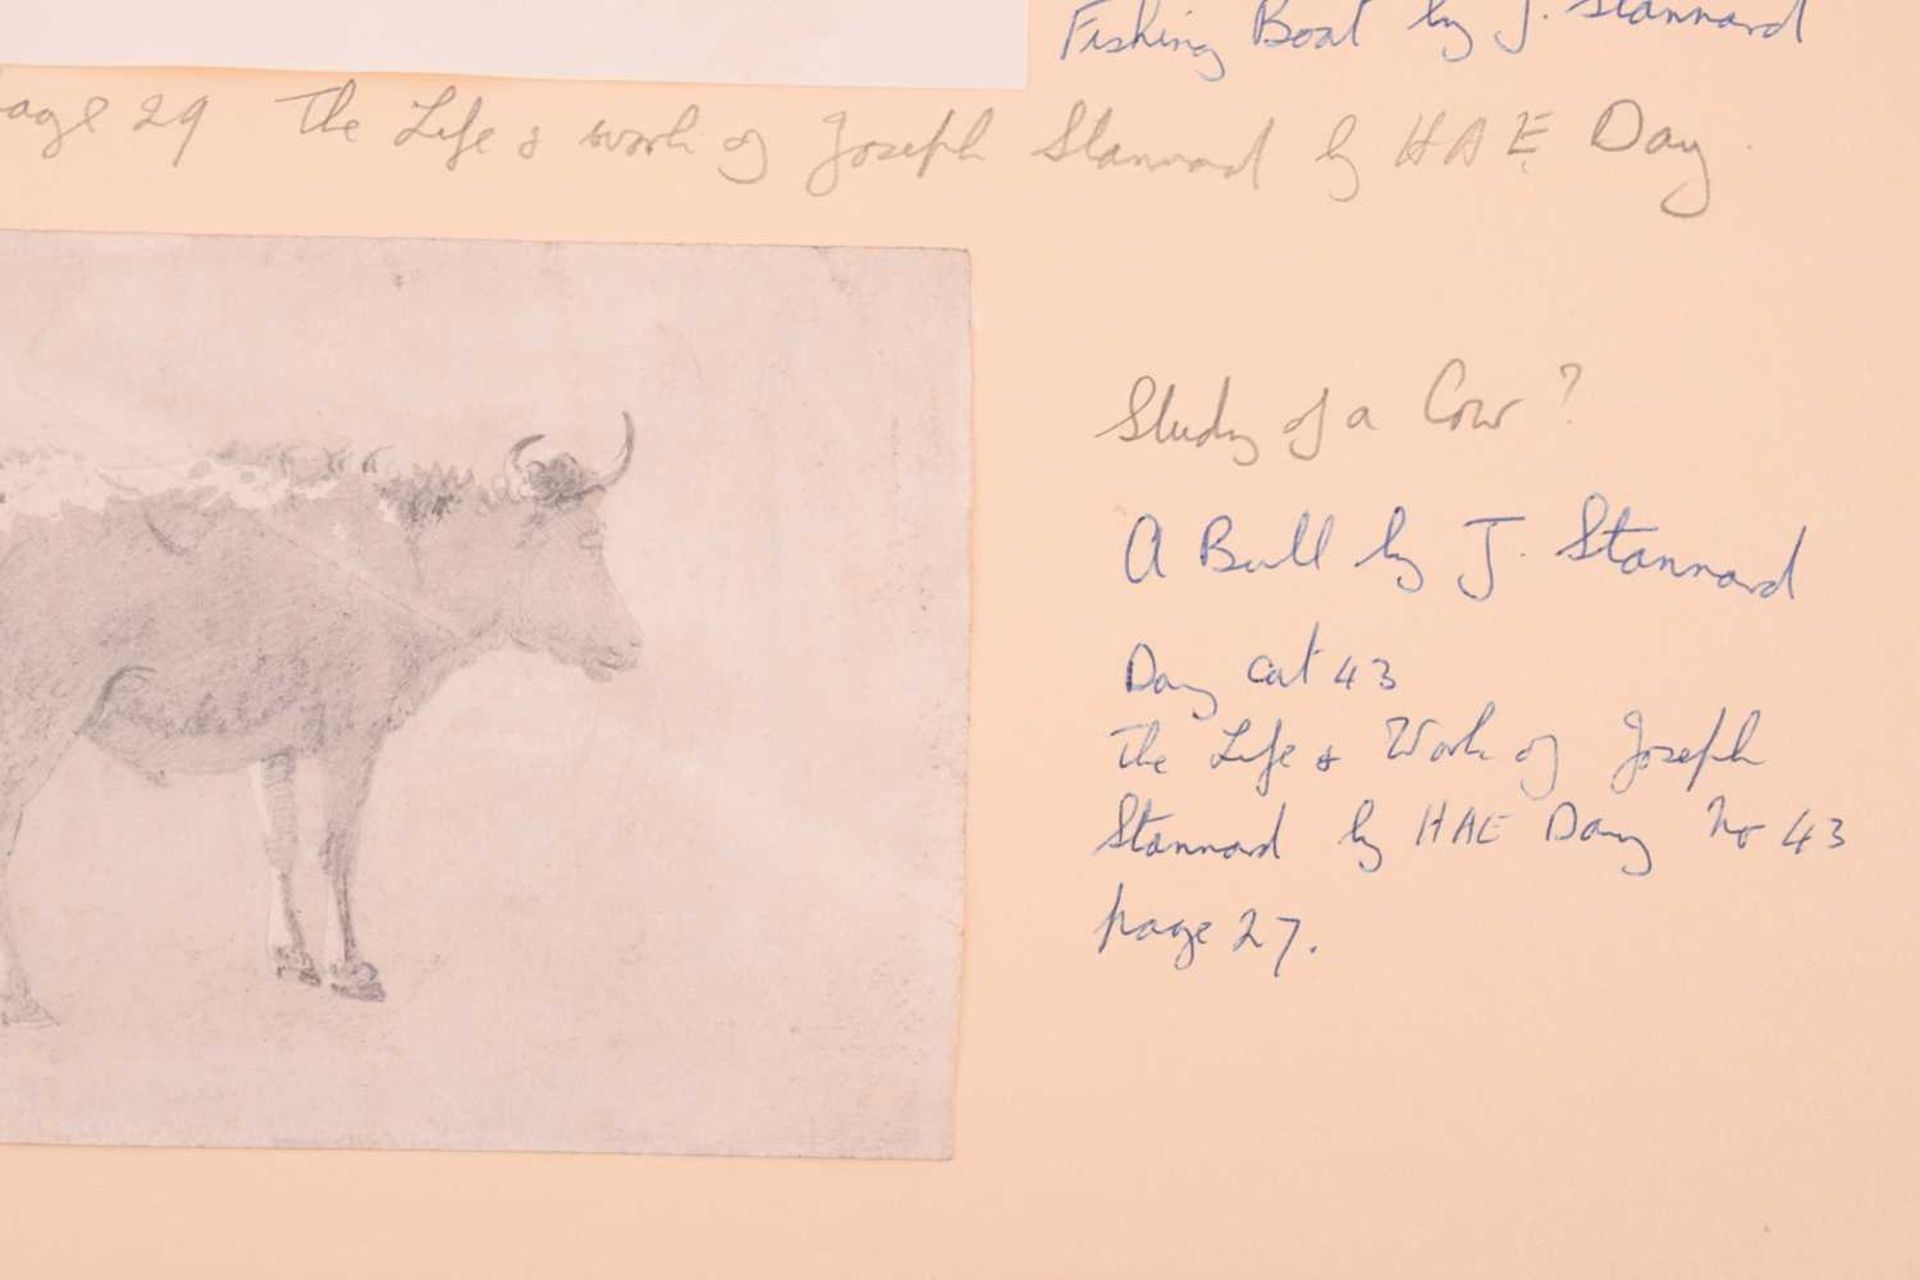 Fishing Boat by J. Stannard
page 29 The Life & work of Joseph Stannard by HAE Day.
Study of a Cow?
A Bull by J. Stannard
Day cat 43
The Life & Work of Joseph
Stannard by HAE Day No 43
page 27.